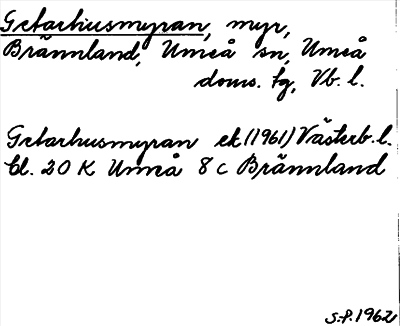 Getarhusmyran, myr,
Brännland, Umeå sn, Umeå
doms. tg, Vb. l.
Getarhusmyran ek (1961) Västerb. l.
bl. 20 K Umeå 8 c Brännland
S.P. 1962